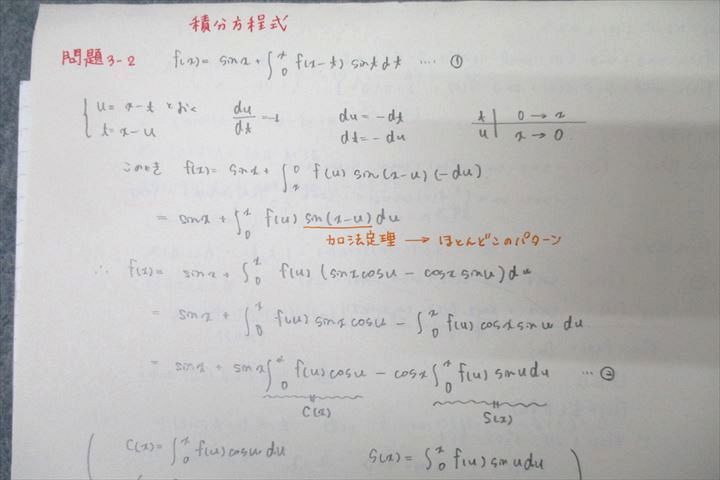 積分方程式
問題3-2 f(x) = sinx + ∫₀ˣ f(x-t) sint dt …. ①
{ u = x-t とおく du/dt = -1 du = -dt t | 0 → x
t = x-u dt = -du u | x → 0
このとき f(x) = sinx + ∫ₓ⁰ f(u) sin(x-u) (-du)
= sinx + ∫₀ˣ f(u) sin(x-u) du
加法定理 → ほとんどこのパターン
∴ f(x) = sinx + ∫₀ˣ f(u) (sinx cosu - cosx sinu) du
= sinx + ∫₀ˣ f(u) sinx cosu - ∫₀ˣ f(u) cosx sinu du
= sinx + sinx ∫₀ˣ f(u) cosu - cosx ∫₀ˣ f(u) sinu du … ②
C(x) S(x)
( C(x) = ∫₀ˣ f(u) cosu du S(x) = ∫₀ˣ f(u) sinu du )